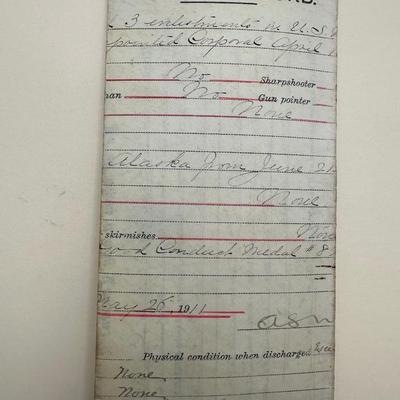 3 enlistments in U.S.
Corporal April
No Sharpshooter
No Gun pointer
None
Alaska from June 21
None
skirmishes None
Good Conduct Medal #8
May 25, 1911
Physical condition when discharged
None
None